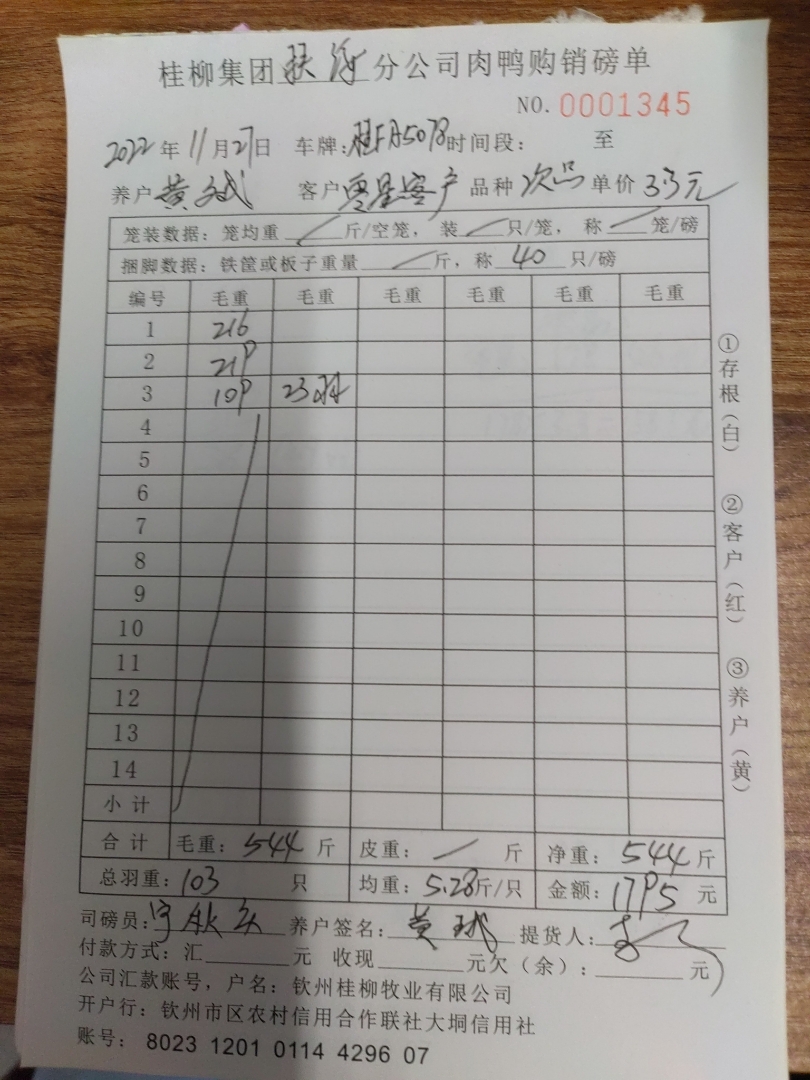 桂柳集团扶绥分公司肉鸭购销磅单
NO. 0001345
2022年11月27日 车牌:桂FA5078时间段: 至
养户黄 客户零星客户 品种次品 单价3.3元
笼装数据:笼均重/斤/空笼,装/只/笼,称/笼/磅
捆脚数据:铁筐或板子重量/斤,称40只/磅
编号 毛重 毛重 毛重 毛重 毛重 毛重
1 216
2 219
3 109 23羽
4
5
6
7
8
9
10
11
12
13
14
小计
合计 毛重:544斤 皮重:/斤 净重:544斤
总羽重:103只 均重:5.28斤/只 金额:1795元
司磅员: 养户签名:黄 提货人:
付款方式:汇 元 收现 元欠(余): 元
公司汇款账号,户名:钦州桂柳牧业有限公司
开户行:钦州市区农村信用合作联社大垌信用社
账号:8023 1201 0114 4296 07
①存根(白) ②客户(红) ③养户(黄)